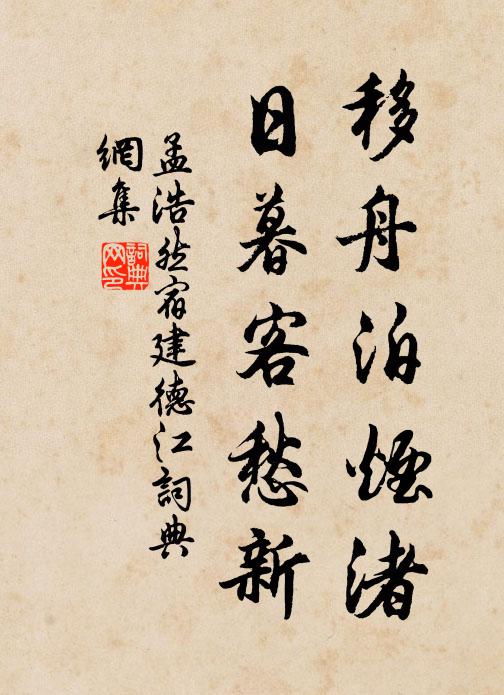 移舟泊煙渚
日暮客愁新
孟浩然宿建德江詞典
網集
詞典网印